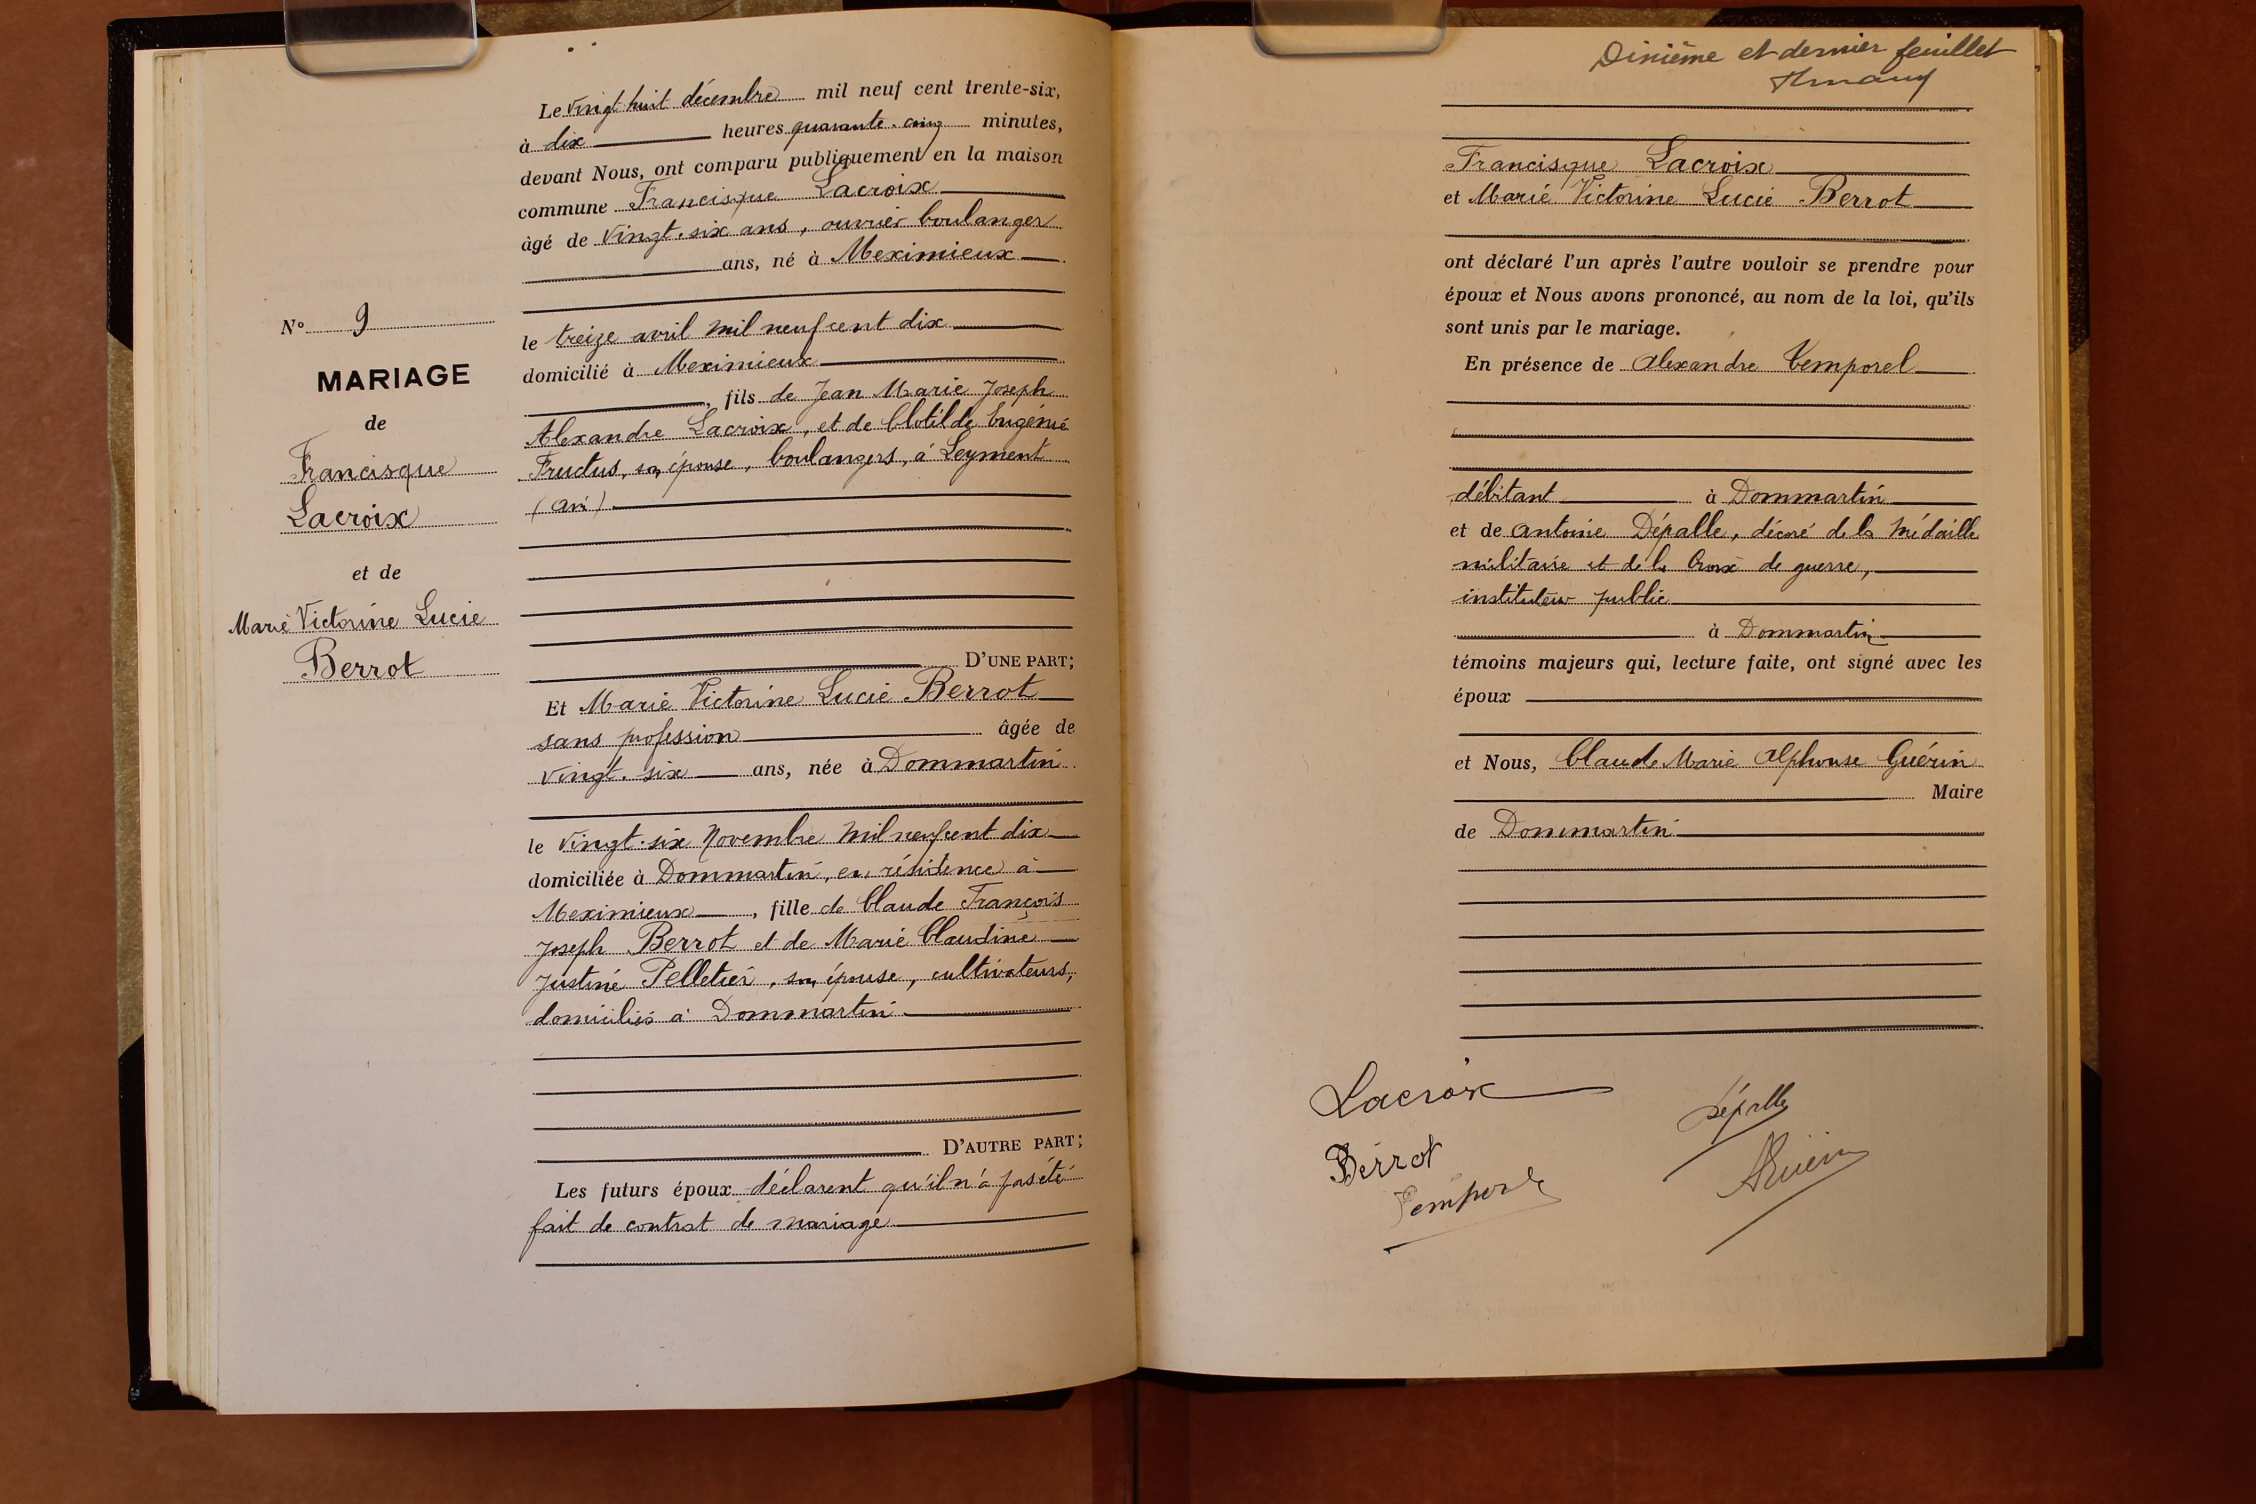 N° 9
MARIAGE
de
Francisque
Lacroix
et de
Marie Victorine Lucie
Berrot
Le vingt huit décembre mil neuf cent trente-six,
à dix heures quarante-cinq minutes,
devant Nous, ont comparu publiquement en la maison
commune Francisque Lacroix
âgé de vingt-six ans, ouvrier boulanger
ans, né à Meximieux
le treize avril mil neuf cent dix
domicilié à Meximieux
, fils de Jean Marie Joseph
Alexandre Lacroix, et de Clotilde Eugénie
Fructus, son épouse, boulangers, à Leyment
(Ain)
D'UNE PART;
Et Marie Victorine Lucie Berrot
sans profession âgée de
vingt-six ans, née à Dommartin
le vingt-six Novembre mil neuf cent dix
domiciliée à Dommartin, en résidence à
Meximieux, fille de Claude François
Joseph Berrot et de Marie Claudine
Justine Pelletier, son épouse, cultivateurs,
domiciliés à Dommartin
D'AUTRE PART;
Les futurs époux déclarent qu'il n'a pas été
fait de contrat de mariage
Dixième et dernier feuillet
Francisque Lacroix
et Marie Victorine Lucie Berrot
ont déclaré l'un après l'autre vouloir se prendre pour
époux et Nous avons prononcé, au nom de la loi, qu'ils
sont unis par le mariage.
En présence de Alexandre Temporel
débitant à Dommartin
et de Antoine Dépalle, décoré de la Médaille
militaire et de la Croix de guerre,
instituteur public
à Dommartin
témoins majeurs qui, lecture faite, ont signé avec les
époux
et Nous, Claude Marie Alphonse Guérin
Maire
de Dommartin
Lacroix
Dépalle
Berrot
AGuérin
Temporel